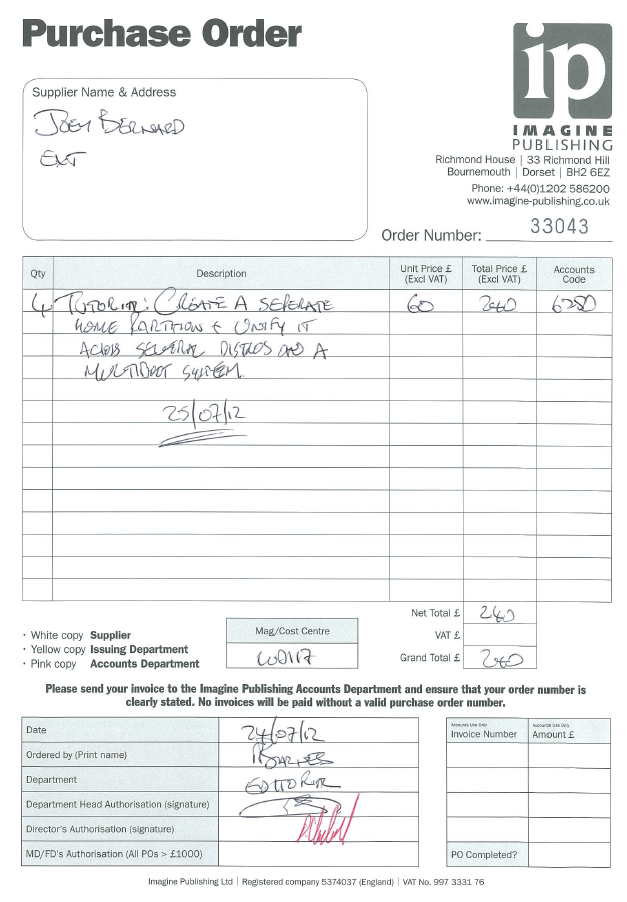 Purchase Order
ip
IMAGINE
PUBLISHING
Richmond House | 33 Richmond Hill
Bournemouth | Dorset | BH2 6EZ
Phone: +44(0)1202 586200
www.imagine-publishing.co.uk
Supplier Name & Address
JOEY BERNARD
EXT
Order Number: 33043
Qty Description Unit Price £ (Excl VAT) Total Price £ (Excl VAT) Accounts Code
4 TUTORIAL: CREATE A SEPERATE 60 240 6280
HOME PARTITION & UNIFY IT
ACROSS SEVERAL DISTROS AND A
MULTIBOOT SYSTEM.
25/07/12
Net Total £ 240
VAT £
Grand Total £ 240
· White copy Supplier
· Yellow copy Issuing Department
· Pink copy Accounts Department
Mag/Cost Centre
LUD117
Please send your invoice to the Imagine Publishing Accounts Department and ensure that your order number is
clearly stated. No invoices will be paid without a valid purchase order number.
Date 24/07/12
Ordered by (Print name) RBARNES
Department EDITORIAL
Department Head Authorisation (signature)
Director's Authorisation (signature)
MD/FD's Authorisation (All POs > £1000)
Accounts Use Only Accounts Use Only
Invoice Number Amount £
PO Completed?
Imagine Publishing Ltd | Registered company 5374037 (England) | VAT No. 997 3331 76